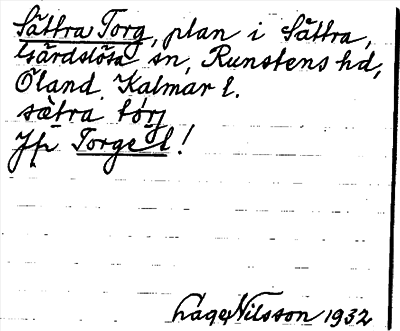 Sättra Torg, plan i Sättra,
Gärdslösa sn, Runstens hd,
Öland. Kalmar l.
sätra tórj
Jfr Torge l!
Lage Nilsson 1932